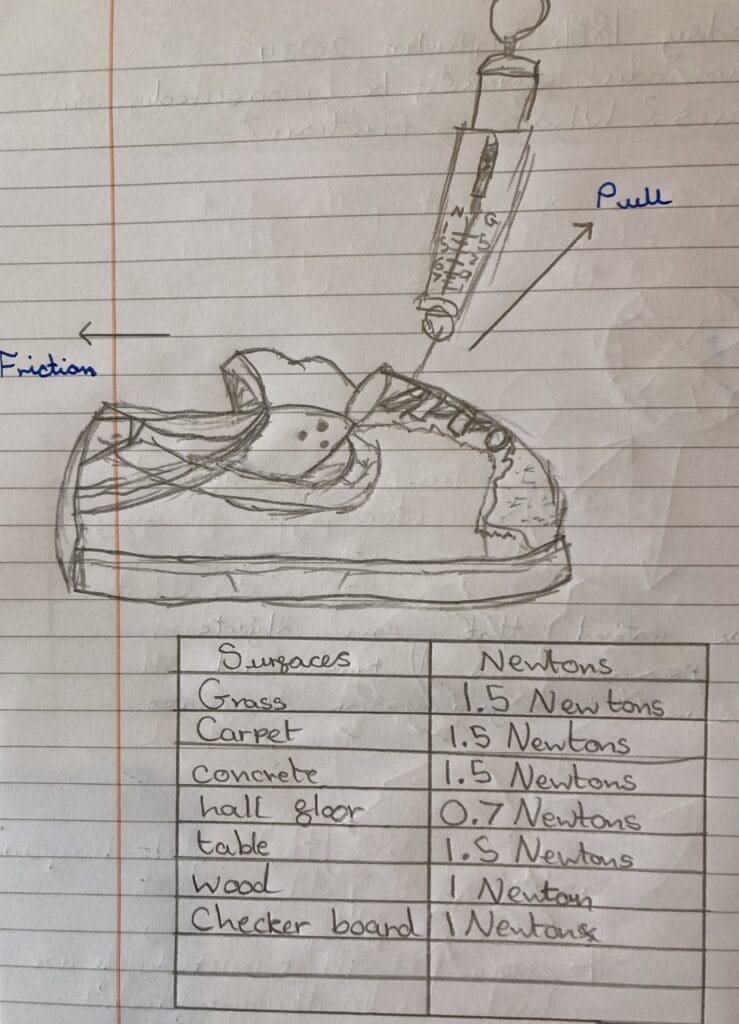 Pull
N G
Friction
Surfaces Newtons
Grass 1.5 Newtons
Carpet 1.5 Newtons
concrete 1.5 Newtons
hall floor 0.7 Newtons
table 1.5 Newtons
Wood 1 Newton
Checker board 1 Newtons